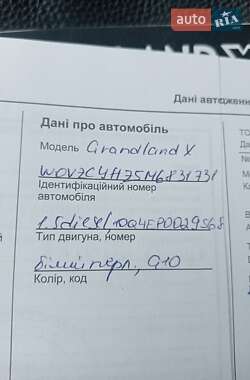 auto RIA
Дані автоження
Дані про автомобіль
Модель Grandland X
W0V7C4H75M6831731
Ідентифікаційний номер
автомобіля
1.5diesel/10Q4FP0029568
Тип двигуна, номер
білий перл., G10
Колір, код